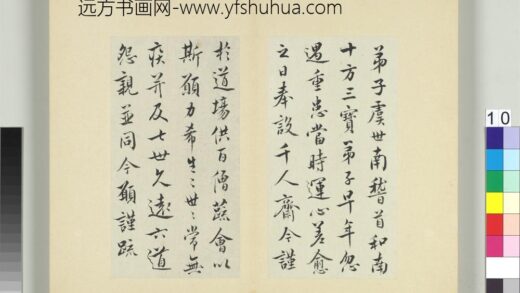 远方书画网-www.yfshuhua.com
弟子虞世南稽首和南
十方三寶弟子早年忽
遇重患當時運心差愈
之日奉設千人齋今謹
於道場供百僧蔬會以
斯願力希生〻世〻常無
疾并及七世久遠六道
怨親並同今願謹疏
10